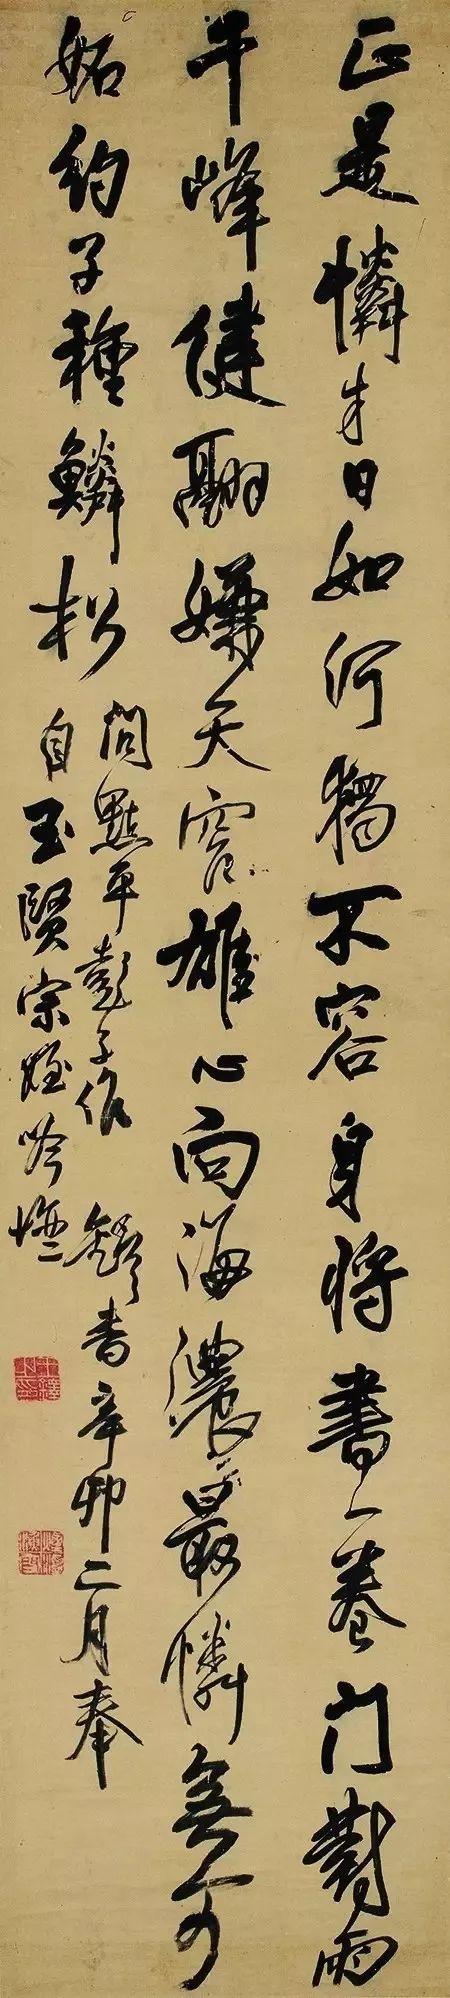 正是憐才日如何獨不容身將書一卷門對兩
千峰健翮嫌天窄雄心向海濃最憐無可
妬約子種鱗松
問點平彭子作 鐸書辛卯二月奉
自玉賢宗姪吟壇